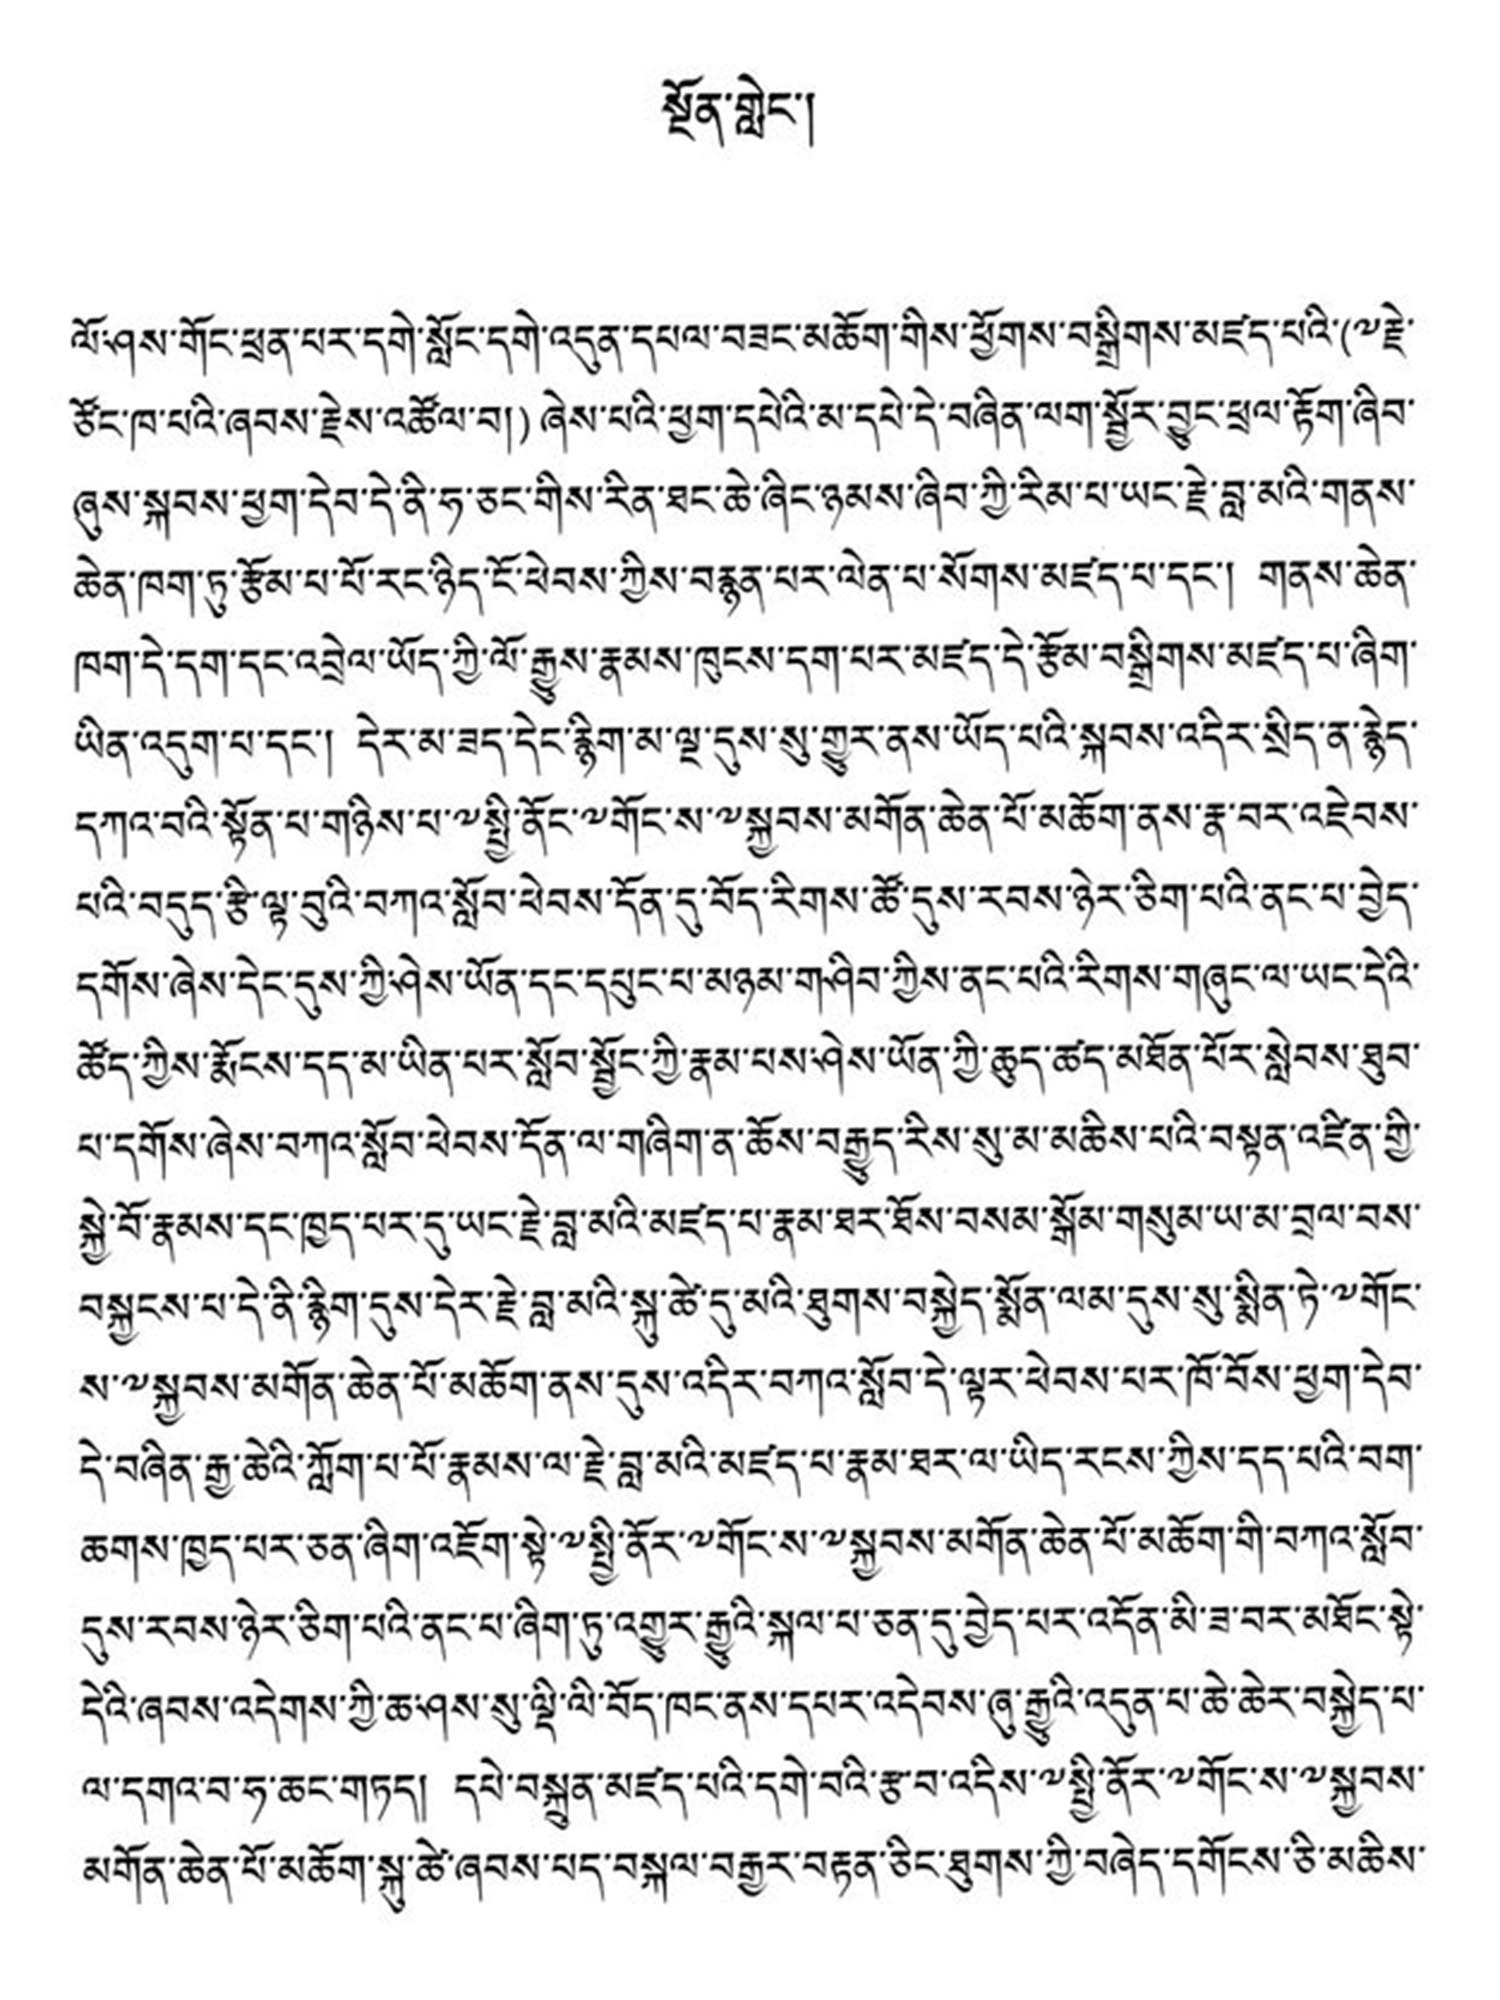 སྔོན་གླེང་།
ལོ་ཤས་གོང་ཕྲན་པར་དགེ་སློང་དགེ་འདུན་དཔལ་བཟང་མཆོག་གིས་ཕྱོགས་བསྒྲིགས་མཛད་པའི་(༧རྗེ་
ཙོང་ཁ་པའི་ཞབས་རྗེས་འཚོལ་བ།) ཞེས་པའི་ཕྱག་དཔེའི་མ་དཔེ་དེ་བཞིན་ལག་སྦྱོར་བྱུང་ཕྲལ་རྟོག་ཞིབ་
ཞུས་སྐབས་ཕྱག་དེབ་དེ་ནི་ཧ་ཅང་གིས་རིན་ཐང་ཆེ་ཞིང་ཉམས་ཞིབ་ཀྱི་རིམ་པ་ཡང་རྗེ་བླ་མའི་གནས་
ཆེན་ཁག་ཏུ་རྩོམ་པ་པོ་རང་ཉིད་ངོ་ཕེབས་ཀྱིས་བརྙན་པར་ལེན་པ་སོགས་མཛད་པ་དང་། གནས་ཆེན་
ཁག་དེ་དག་དང་འབྲེལ་ཡོད་ཀྱི་ལོ་རྒྱུས་རྣམས་ཁུངས་དག་པར་མཛད་དེ་རྩོམ་བསྒྲིགས་མཛད་པ་ཞིག་
ཡིན་འདུག་པ་དང་། དེར་མ་ཟད་དེང་སྙིག་མ་ལྔ་དུས་སུ་གྱུར་ནས་ཡོད་པའི་སྐབས་འདིར་སྲིད་ན་རྙེད་
དཀའ་བའི་སྟོན་པ་གཉིས་པ་༧སྤྱི་ནོང་༧གོང་ས་༧སྐྱབས་མགོན་ཆེན་པོ་མཆོག་ནས་རྣ་བར་འཇེབས་
པའི་བདུད་རྩི་ལྟ་བུའི་བཀའ་སློབ་ཕེབས་དོན་དུ་བོད་རིགས་ཚོ་དུས་རབས་ཉེར་ཅིག་པའི་ནང་པ་བྱེད་
དགོས་ཞེས་དེང་དུས་ཀྱི་ཤེས་ཡོན་དང་དཔུང་པ་མཉམ་གཤིབ་ཀྱིས་ནང་པའི་རིགས་གཞུང་ལ་ཡང་དེའི་
ཚོད་ཀྱིས་རྨོངས་དད་མ་ཡིན་པར་སློབ་སྦྱོང་ཀྱི་རྣམ་པས་ཤེས་ཡོན་ཀྱི་ཆུད་ཚད་མཐོན་པོར་སླེབས་ཐུབ་
པ་དགོས་ཞེས་བཀའ་སློབ་ཕེབས་དོན་ལ་གཞིག་ན་ཆོས་བརྒྱུད་རིས་སུ་མ་མཆིས་པའི་བསྟན་འཛིན་གྱི་
སྐྱེ་བོ་རྣམས་དང་ཁྱད་པར་དུ་ཡང་རྗེ་བླ་མའི་མཛད་པ་རྣམ་ཐར་ཐོས་བསམ་སྒོམ་གསུམ་ཡ་མ་བྲལ་བས་
བསྐྱངས་པ་དེ་ནི་སྙིག་དུས་དེར་རྗེ་བླ་མའི་སྐུ་ཚེ་དུ་མའི་ཐུགས་བསྐྱེད་སྨོན་ལམ་དུས་སུ་སྨིན་ཏེ་༧གོང་
ས་༧སྐྱབས་མགོན་ཆེན་པོ་མཆོག་ནས་དུས་འདིར་བཀའ་སློབ་དེ་ལྟར་ཕེབས་པར་ཁོ་བོས་ཕྱག་དེབ་
དེ་བཞིན་རྒྱ་ཆེའི་ཀློག་པ་པོ་རྣམས་ལ་རྗེ་བླ་མའི་མཛད་པ་རྣམ་ཐར་ལ་ཡིད་རངས་ཀྱིས་དད་པའི་བག་
ཆགས་ཁྱད་པར་ཅན་ཞིག་འཇོག་སྟེ་༧སྤྱི་ནོར་༧གོང་ས་༧སྐྱབས་མགོན་ཆེན་པོ་མཆོག་གི་བཀའ་སློབ་
དུས་རབས་ཉེར་ཅིག་པའི་ནང་པ་ཞིག་ཏུ་འགྱུར་རྒྱུའི་སྐལ་པ་ཅན་དུ་བྱེད་པར་འདོན་མི་ཟ་བར་མཐོང་སྟེ་
དེའི་ཞབས་འདེགས་ཀྱི་ཆ་ཤས་སུ་ལྡི་ལི་བོད་ཁང་ནས་དཔར་འདེབས་ཞུ་རྒྱུའི་འདུན་པ་ཆེ་ཆེར་བསྐྱེད་པ་
ལ་དགའ་བ་ཧ་ཆང་གཏད། དཔེ་བསྐྲུན་མཛད་པའི་དགེ་བའི་རྩ་བ་འདིས་༧སྤྱི་ནོར་༧གོང་ས་༧སྐྱབས་
མགོན་ཆེན་པོ་མཆོག་སྐུ་ཚེ་ཞབས་པད་བསྐལ་བརྒྱར་བརྟན་ཅིང་ཐུགས་ཀྱི་བཞེད་དགོངས་ཅི་མཆིས་